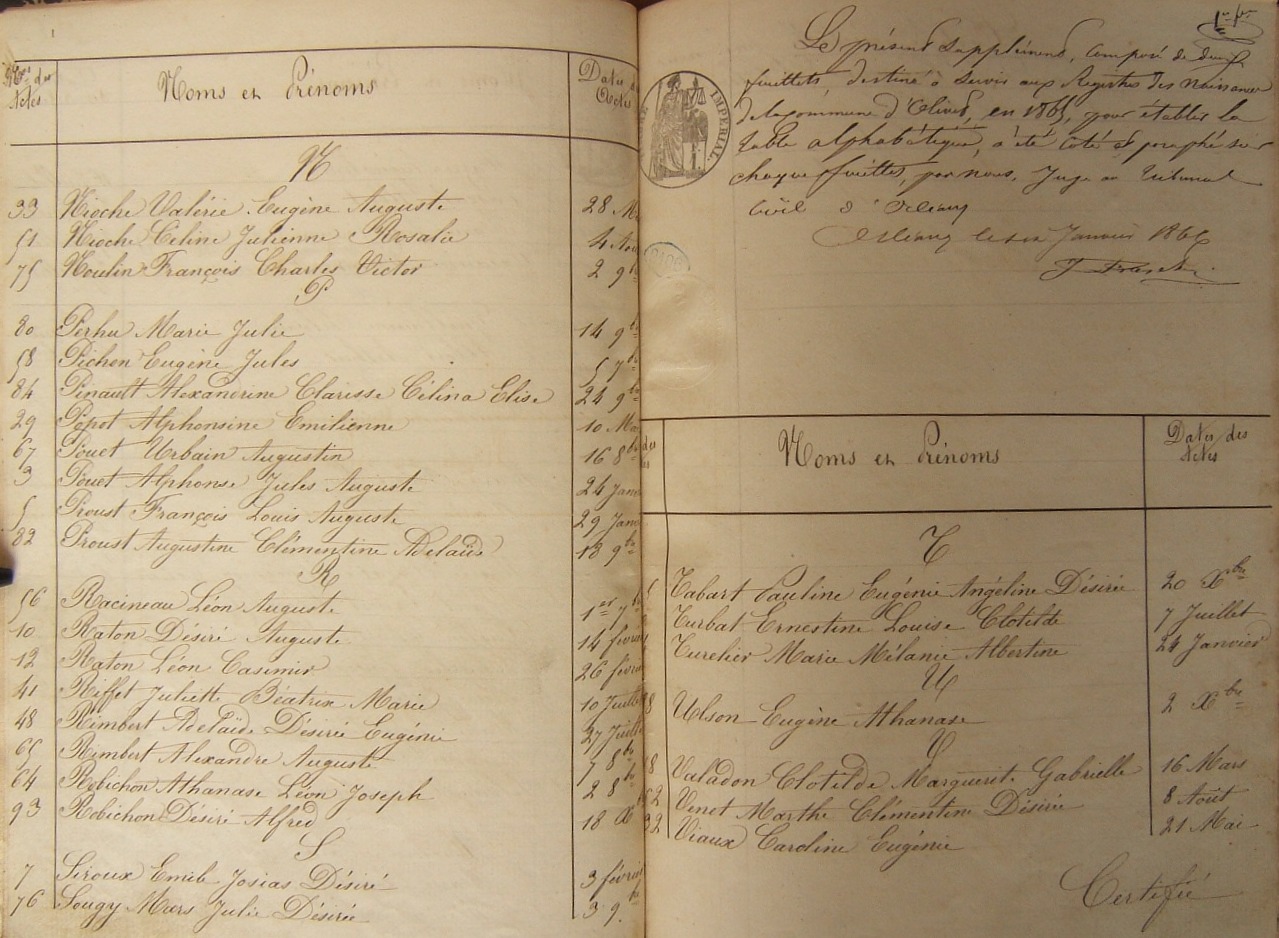 Nos des
Actes
Noms et Prénoms
Dates des
Actes
N
33 Nioche Valérie Eugène Auguste 28
51 Nioche Céline Julienne Rosalie 4 Aou
75 Moulin François Charles Victor 2 9b
P
80 Perhu Marie Julie 14 9bre
58 Pichon Eugène Jules 5 7bre
84 Pinault Alexandrine Clarisse Célina Elise 24 9bre
29 Popot Alphonsine Emilienne 10 Ma
67 Pouet Urbain Augustin 16 8bre
3 Pouet Alphonse Jules Auguste 24 Janv
5 Proust François Louis Auguste 29 Janv
82 Proust Augustine Clémentine Adelaïde 18 9bre
R
56 Racineau Léon Auguste 1er 7b
10 Raton Désiré Auguste 14 févri
12 Raton Léon Casimir 26 févri
41 Riffet Juliette Béatrix Marie 10 Juill
48 Rimbert Adelaïde Désirée Eugénie 27 Juill
65 Rimbert Alexandre Auguste 7 8b
64 Robichon Athanase Léon Joseph 2 8b
93 Robichon Désiré Alfred 18 X
S
7 Siroux Emile Josias Désiré 3 févri
76 Sougy Mars Julie Désirée 3 9bre
1er fet
Le présent supplément, composé de deux
feuillets, destiné à servir aux Registres des Naissances
de la commune d'Olivet, en 1865, pour établir la
table alphabétique, a été coté et paraphé sur
chaque feuillet, par nous, Juge au tribunal
civil d'Orléans
Orléans le six Janvier 1866
IMPERIAL.
des
Noms et Prénoms
Dates des
Actes
T
Tabart Pauline Eugénie Angéline Désirée 20 Xbre
Turbat Ernestine Louise Clotilde 7 Juillet
Turelier Marie Mélanie Albertine 24 Janvier
U
8 Ulson Eugène Athanase 2 Xbre
V
18 Valadon Clotilde Marguerite Gabrielle 16 Mars
2 Venet Marthe Clémentine Désirée 8 Août
32 Viaux Caroline Eugénie 21 Mai
Certifié